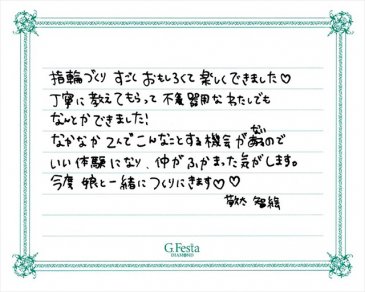 指輪づくり すごく おもしろくて 楽しくできました♡
丁寧に教えてもらって 不器用なわたしでも
なんとかできました!
なかなか 2人で こんなことする機会がないので
いい体験になり、仲がふかまった気がします。
今度 娘と一緒につくりにきます♡♡
智絵
G.Festa
DIAMOND